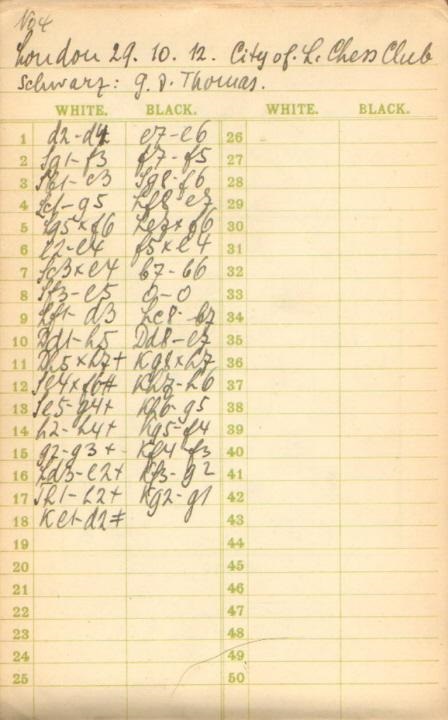 No 4
London 29. 10. 12. City of L. Chess Club
Schwarz: G. A. Thomas.
WHITE. BLACK. WHITE. BLACK.
1 d2-d4 e7-e6 26
2 Sg1-f3 f7-f5 27
3 Sb1-c3 Sg8-f6 28
4 Lc1-g5 Lf8-e7 29
5 Lg5xf6 Le7xf6 30
6 e2-e4 f5xe4 31
7 Sc3xe4 b7-b6 32
8 Sf3-e5 0-0 33
9 Lf1-d3 Lc8-b7 34
10 Dd1-h5 Dd8-e7 35
11 Dh5xh7+ Kg8xh7 36
12 Se4xf6++ Kh7-h6 37
13 Se5-g4+ Kh6-g5 38
14 h2-h4+ Kg5-f4 39
15 g2-g3+ Kf4-f3 40
16 Ld3-e2+ Kf3-g2 41
17 Th1-h2+ Kg2-g1 42
18 Ke1-d2≠ 43
19 44
20 45
21 46
22 47
23 48
24 49
25 50